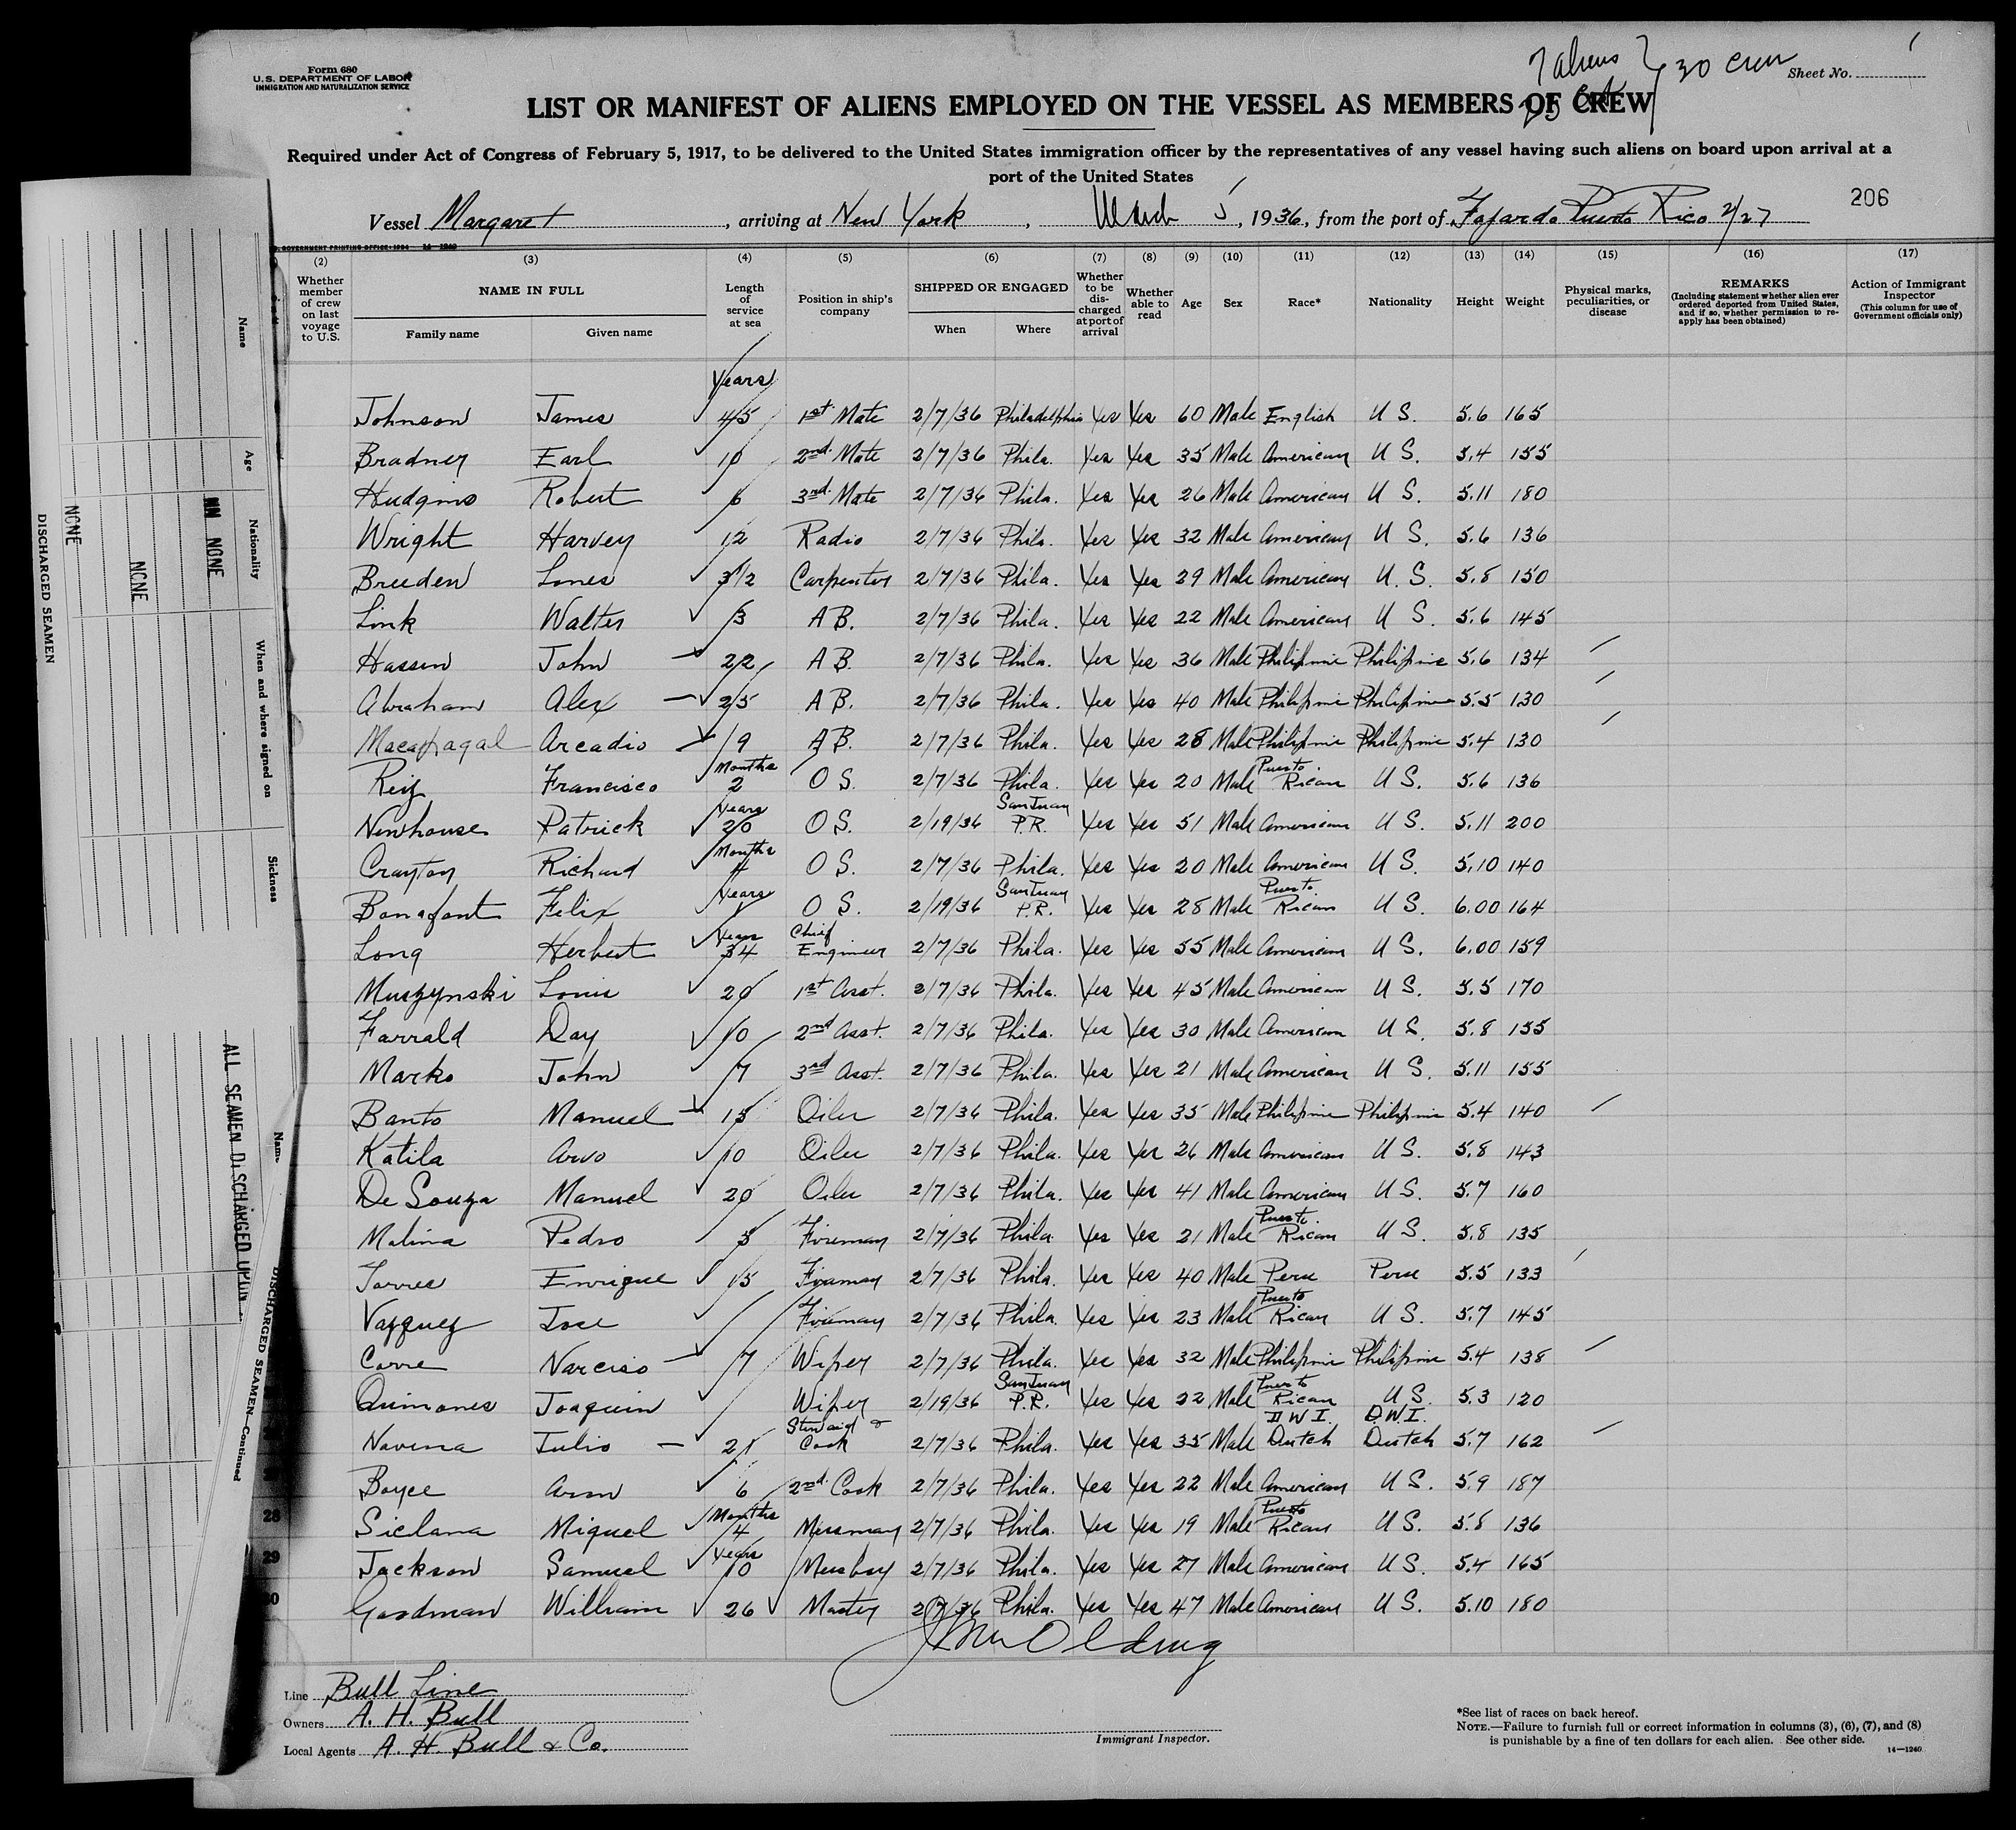 Form 680
U.S. DEPARTMENT OF LABOR
IMMIGRATION AND NATURALIZATION SERVICE
7 aliens
30 crew
Sheet No. 1
LIST OR MANIFEST OF ALIENS EMPLOYED ON THE VESSEL AS MEMBERS OF CREW
Required under Act of Congress of February 5, 1917, to be delivered to the United States immigration officer by the representatives of any vessel having such aliens on board upon arrival at a
port of the United States
206
Vessel Margaret, arriving at New York, March 5, 1936, from the port of Fajardo Puerto Rico 2/27
(2) (3) (4) (5) (6) (7) (8) (9) (10) (11) (12) (13) (14) (15) (16) (17)
Whether member of crew on last voyage to U.S.
NAME IN FULL
Family name Given name
Length of service at sea
Position in ship's company
SHIPPED OR ENGAGED
When Where
Whether to be discharged at port of arrival
Whether able to read
Age
Sex
Race*
Nationality
Height
Weight
Physical marks, peculiarities, or disease
REMARKS
(Including statement whether alien ever ordered deported from United States, and if so, whether permission to reapply has been obtained)
Action of Immigrant Inspector
(This column for use of Government officials only)
Years
Johnson James 45 1st Mate 2/7/36 Philadelphia Yes Yes 60 Male English U S. 5.6 165
Bradney Earl 10 2nd Mate 2/7/36 Phila. Yes Yes 35 Male American U S. 5.4 155
Hudgins Robert 6 3rd Mate 2/7/36 Phila. Yes Yes 26 Male American U S. 5.11 180
Wright Harvey 12 Radio 2/7/36 Phila. Yes Yes 32 Male American U S. 5.6 136
Breeden Lones 3 1/2 Carpenter 2/7/36 Phila. Yes Yes 29 Male American U.S. 5.8 150
Link Walter 3 A B. 2/7/36 Phila. Yes Yes 22 Male American U S. 5.6 145
Hassen John 22 A B. 2/7/36 Phila. Yes Yes 36 Male Philipine Philipine 5.6 134
Abraham Alex 25 A B. 2/7/36 Phila. Yes Yes 40 Male Philipine Philipine 5.5 130
Macapagal Arcadio 9 A B. 2/7/36 Phila. Yes Yes 28 Male Philipine Philipine 5.4 130
Reiz Francisco Months 2 O S. 2/7/36 Phila. Yes Yes 20 Male Puerto Rican U S. 5.6 136
Newhouse Patrick Years 20 O S. 2/19/36 San Juan P.R. Yes Yes 51 Male American U S. 5.11 200
Crayton Richard Months 4 O S. 2/7/36 Phila. Yes Yes 20 Male American U S. 5.10 140
Bonafont Felix Years 1 O S. 2/19/36 San Juan P.R. Yes Yes 28 Male Puerto Rican U S. 6.00 164
Long Herbert Years 34 Chief Engineer 2/7/36 Phila. Yes Yes 55 Male American U S. 6.00 159
Muszynski Louis 20 1st Asst. 2/7/36 Phila. Yes Yes 45 Male American U S. 5.5 170
Farrald Day 10 2nd Asst. 2/7/36 Phila. Yes Yes 30 Male American U S. 5.8 155
Marko John 7 3rd Asst. 2/7/36 Phila. Yes Yes 21 Male American U S. 5.11 155
Banto Manuel 15 Oiler 2/7/36 Phila. Yes Yes 35 Male Philipine Philipine 5.4 140
Katila Arvo 10 Oiler 2/7/36 Phila. Yes Yes 26 Male American U S. 5.8 143
De Souza Manuel 20 Oiler 2/7/36 Phila. Yes Yes 41 Male American U S. 5.7 160
Malina Pedro 5 Fireman 2/7/36 Phila Yes Yes 21 Male Puerto Rican U S. 5.8 135
Torres Enrique 15 Fireman 2/7/36 Phila. Yes Yes 40 Male Peru Peru 5.5 133
Vazquez Jose Fireman 2/7/36 Phila. Yes Yes 23 Male Puerto Rican U S. 5.7 145
Corre Narciso 7 Wiper 2/7/36 Phila. Yes Yes 32 Male Philipine Philipine 5.4 138
Quinones Joaquin Wiper 2/19/36 San Juan P.R. Yes Yes 22 Male Puerto Rican U S. 5.3 120
Navena Julio 21 Steward & Cook 2/7/36 Phila. Yes Yes 35 Male D W I. Dutch D.W.I. Dutch 5.7 162
Boyce Aron 6 2nd Cook 2/7/36 Phila. Yes Yes 22 Male American U S. 5.9 187
28 Siclana Miguel Months 4 Messman 2/7/36 Phila. Yes Yes 19 Male Puerto Rican U S. 5.8 136
29 Jackson Samuel Years 10 Messboy 2/7/36 Phila. Yes Yes 27 Male American U S. 5.4 165
30 Goodman William 26 Master 2/7/36 Phila. Yes Yes 47 Male American U S. 5.10 180
Line Bull Line
Owners A. H. Bull
Local Agents A. H. Bull & Co.
Immigrant Inspector.
*See list of races on back hereof.
NOTE.—Failure to furnish full or correct information in columns (3), (6), (7), and (8)
is punishable by a fine of ten dollars for each alien. See other side.
14—1240
Name
Age
Nationality
When and where signed on
Sickness
NONE
NONE
NONE
DISCHARGED SEAMEN
ALL SEAMEN DISCHARGED UPON
Name
DISCHARGED SEAMEN—Continued